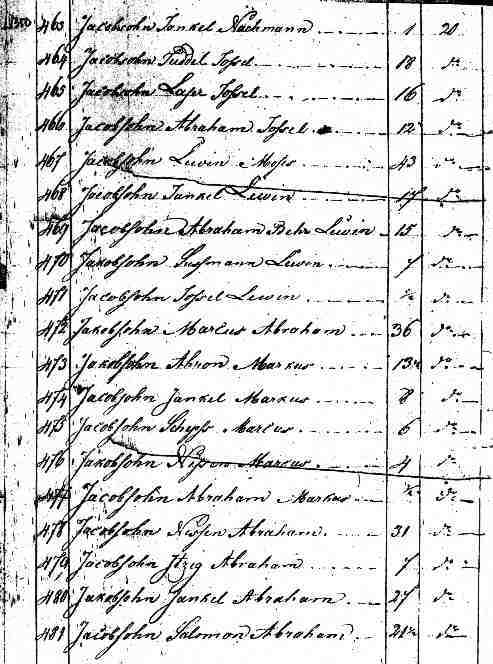 463 Jacobsohn Jankel Nachmann 1 20
464 Jacobsohn Feddel Jossel 18 do
465 Jacobsohn Laser Jossel 16 do
466 Jacobsohn Abraham Jossel 12 do
467 Jacobsohn Lewin Moses 43 do
468 Jacobsohn Jankel Lewin 17 do
469 Jacobsohn Abraham Behr Lewin 15 do
470 Jakobsohn Sussmann Lewin 7 do
471 Jacobsohn Jossel Lewin ½ do
472 Jakobsohn Marcus Abraham 36 do
473 Jakobsohn Ahron Markus 13½ do
474 Jacobsohn Jankel Markus 8 do
475 Jacobsohn Marcus 6 do
476 Jakobsohn Nissen Marcus 4 do
477 Jacobsohn Abraham Markus ½ do
478 Jacobsohn Nissen Abraham 31 do
479 Jacobsohn Itzig Abraham 7 do
480 Jakobsohn Jankel Abraham 27 do
481 Jacobsohn Salomon Abraham 21½ do